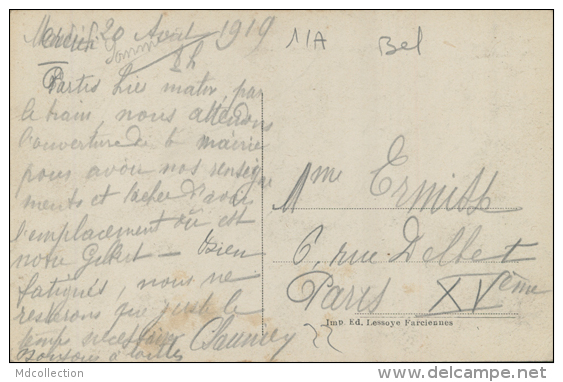 Mercredi 20 Août 1919
8h
11A
Bel
Partis hier matin, par
le train, nous attendons
l'ouverture de la mairie
pour avoir nos renseigne
ments et tacher d'avoir
l'emplacement où est
notre Gilbert - Bien
fatigués, nous ne
resterons que juste le
temps nécessaire
Bonjour à toutes
Mme Ermiss
6, rue Delbet
Paris XVème
Imp. Ed. Lessoye Farciennes
Mdcollection
delcampe.net